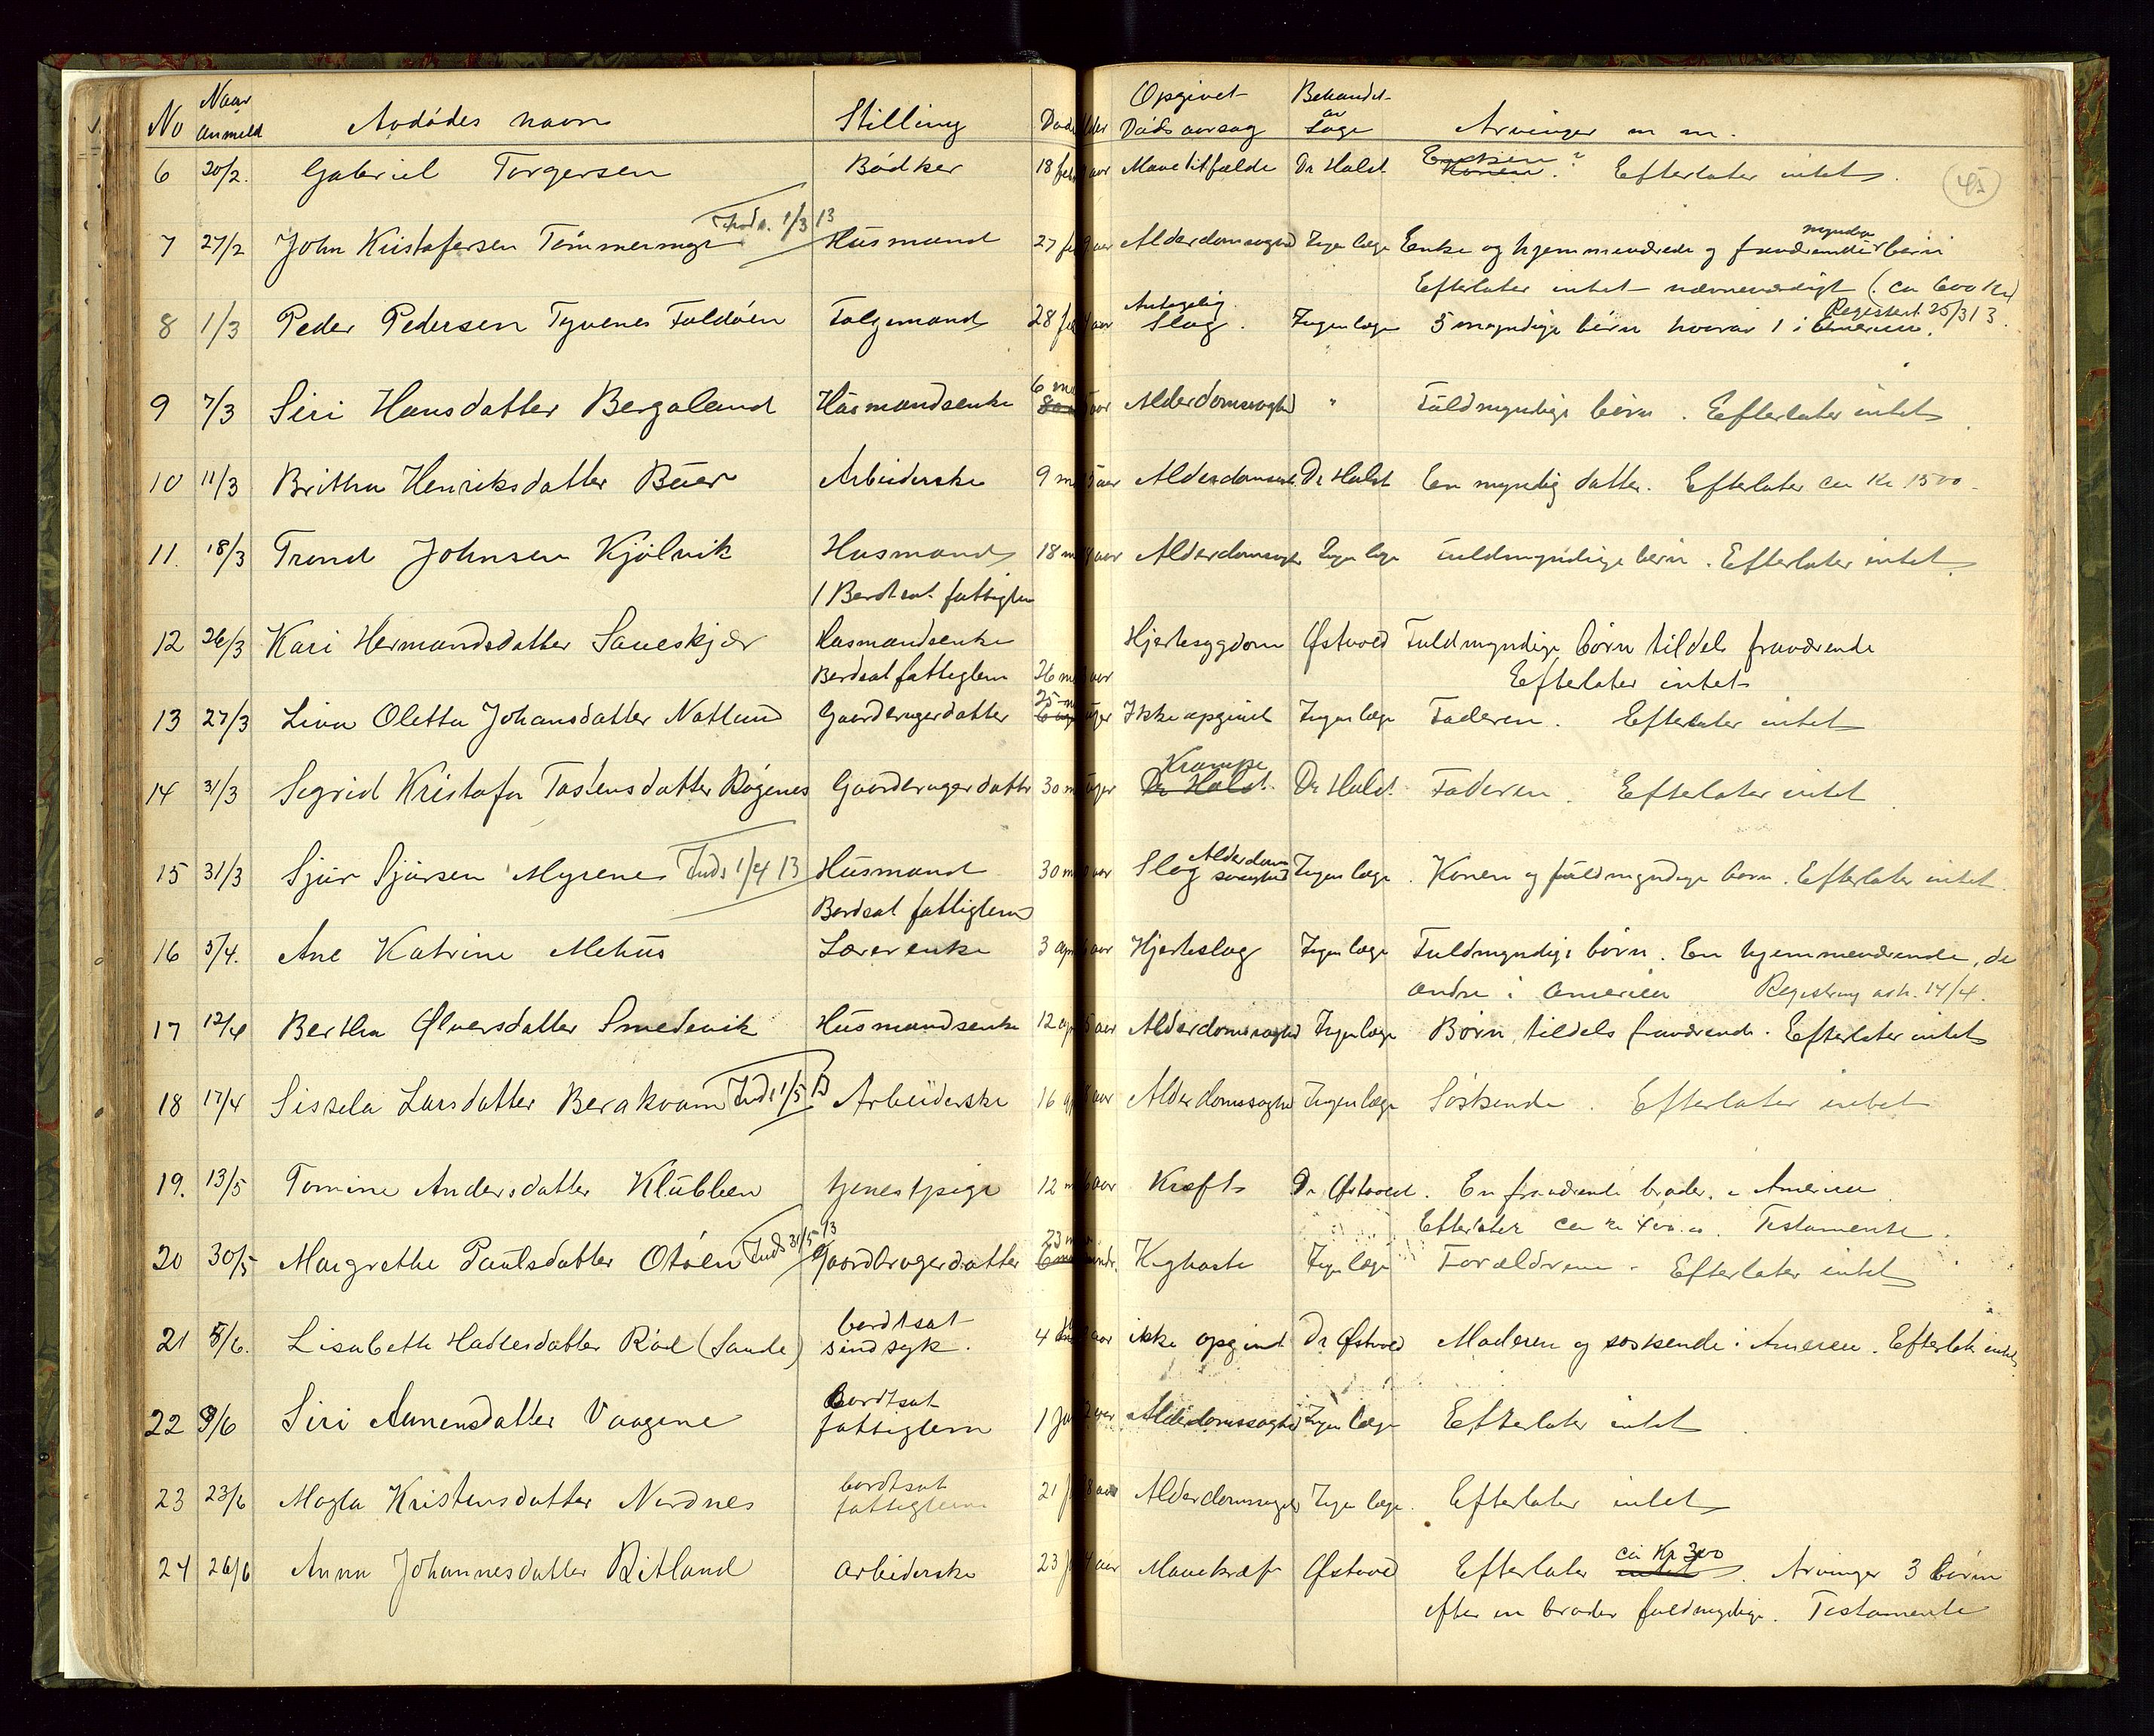 No Naar anmeld Avdødes navn Stilling Døds Opgivet Dødsaarsag Behandl. av Læge Arvinger m m.
6 20/2. Gabriel Torgersen Bødker 18 feb aar Mavetilfælde Dr Halst Enken? Konen? Efterlater intet. 45
7 27/2 John Kristofersen Tømmermyr 1/3 13 Husmand 27 fe aar Alderdomssvaghed Ingen læge Enke og hjemmeværende og fraværende myndige børn
Efterlater intet nævneværdigt (ca 600 Kr)
8 1/3 Peder Pedersen Tyvenes Foldøen Følgemand 28 fe aar Antagelig Slag. Ingen læge 5 myndige børn hvorav 1 i Amerika. Registert 25/3 13.
9 7/3 Siri Hansdatter Bergaland Husmandsenke 6 m aar Alderdomssvaghed " Fuldmyndige børn. Efterlater intet
10 11/3 Britha Henriksdatter Buer Arbeiderske 9 m aar Alderdomssv. Dr Halst En myndig datter. Efterlater ca Kr 1500-
11. 18/3 Trond Johnsen Kjølvik Husmand 18 m aar Alderdomssvagh Ingen læge Fuldmyndige børn. Efterlater intet.
/ Bordsat fattiglem
12 26/3 Kari Hermandsdatter Saueskjær Husmandsenke Hjertesygdom Østvold Fuldmyndige børn tildels fraværende
Bordsat fattiglem 26 m aar Efterlater intet
13 27/3 Lina Oletta Johansdatter Natland Gaardbrugerdatter 25 m uger Ikke opgivet Ingen læge Faderen. Efterlater intet
14 31/3 Sigrid Kristofa Tostensdatter Røgenes Gaardbrugerdatter 30 m uger Krampe Dr Halst. Dr Halst. Faderen. Efterlater intet
15 31/3 Sjur Sjursen Myrene Inds 1/4 13 Husmand 30 m aar Slag Alderdomssvaghed Ingen læge. Konen og fuldmyndige børn. Efterlater intet.
Bordsat fattiglem
16 5/4. Ane Katrine Mehus Lærerenke 3 apr aar Hjerteslag Ingen læge Fuldmyndige børn. En hjemmeværende, de
andre i Amerika Registrering avh. 14/4.
17 12/4 Bertha Ølversdatter Smedevik Husmandsenke 12 ap aar Alderdomssvaghed Ingen læge Børn, tildels fraværende. Efterlater intet
18 17/4 Sissela Larsdatter Berakvam Inds 1/5 13 Arbeiderske 16 ap aar Alderdomssvaghed Ingen læge Søskende. Efterlater intet
19. 13/5 Tomine Andersdatter Klubben tjenestpige 12 m aar Kræft Dr Østvold. En fraværende broder, i Amerika.
Efterlater ca kr 400.00. Testamente.
20 30/5 Margrethe Paulsdatter Otøen Inds 31/5 13 Gaardbrugerdatter 23 m mndr. Kighoste Ingen læge Forældrene. Efterlater intet
21 5/6. Lisabeth Hadlesdatter Rød (Sande) bordtsat sindsyk. 4 aar ikke opgivet Dr Østvold Moderen og søskende i Amerika. Efterlater intet
22 9/6 Siri Aanensdatter Vaagene Bordtsat fattiglem 1 Ju aar Alderdomssvaghed Ingen læge Efterlater intet
23 23/6 Magla Kristensdatter Nordnes bordtsat fattiglem 21 j aar Alderdomssvagh Ingen læge. Efterlater intet
24 26/6 Anna Johannesdatter Ritland arbeiderske 23 j aar Mavekræft Østvold Efterlater intet ca Kr 300. Arvinger 3 børn
efter en broder fuldmyndige. Testamente